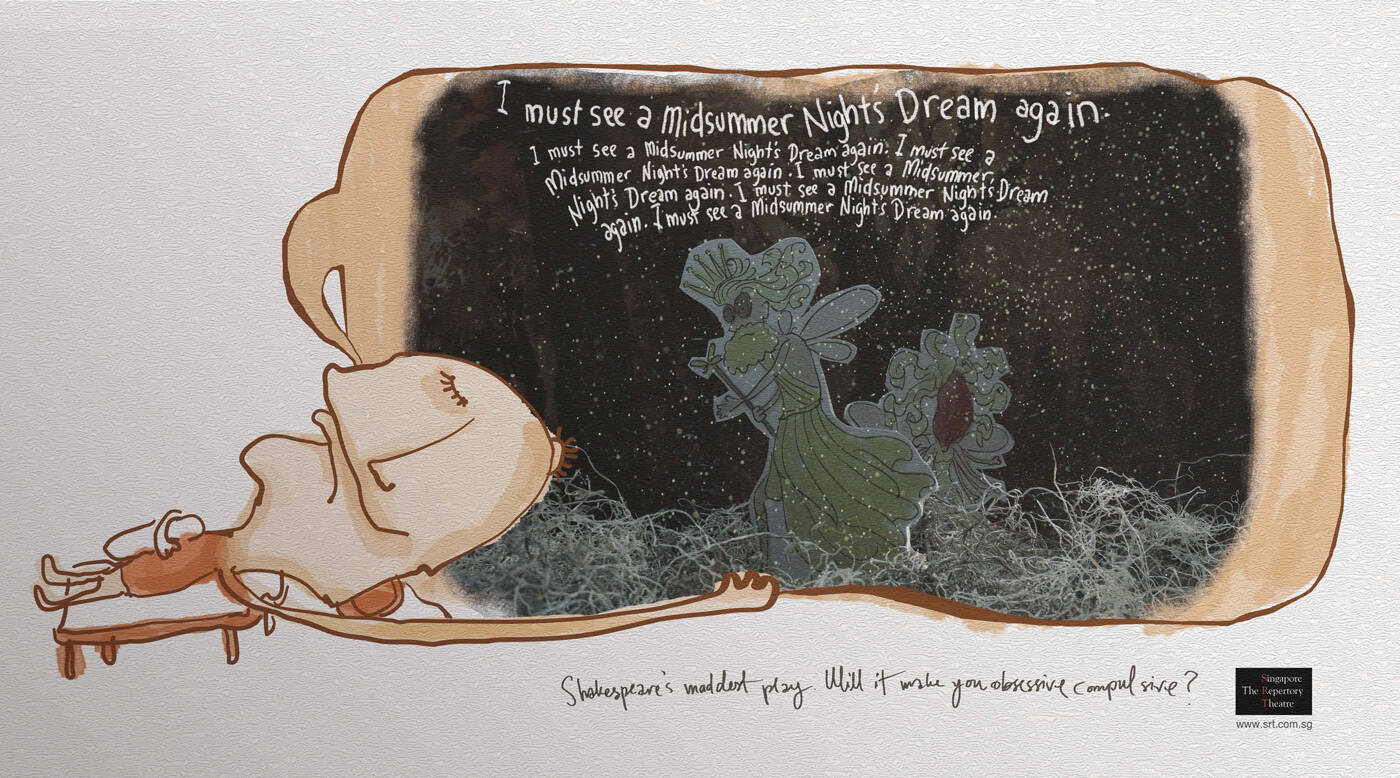 I must see a Midsummer Night's Dream again.
I must see a Midsummer Night's Dream again. I must see a
Midsummer Night's Dream again. I must see a Midsummer,
Night's Dream again. I must see a Midsummer Night's Dream
again. I must see a Midsummer Night's Dream again.
Shakespeare's maddest play. Will it make you obsessive compulsive?
Singapore
The Repertory
Theatre
www.srt.com.sg